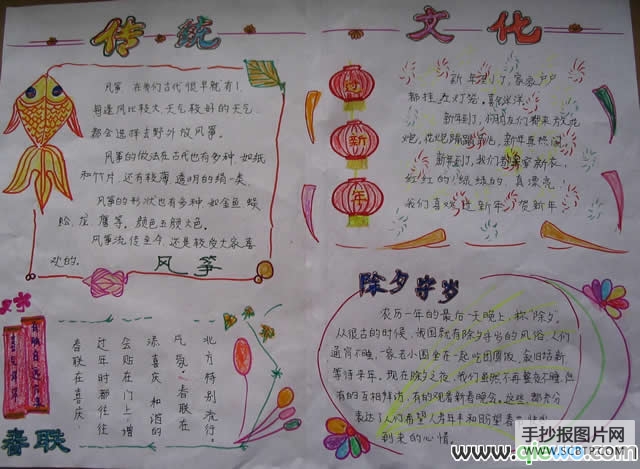 传统
文化
风筝,在我们古代很早就有了,
每逢风比较大,天气较好的天气,
都会选择去野外放风筝。
风筝的做法在古代也有多种,如纸
和竹片,还有较薄透明的绢一类。
风筝的形状也有多种,如金鱼 蜈
蚣、龙、鹰等。颜色五颜六色。
风筝流传至今,还是较受大家喜
欢的。
风筝
新年
新年到了,家家户户
都挂灯笼。喜洋洋。
新年到了,我们都穿新衣,
红红的,绿绿的,真漂亮。
我们喜欢过新年,贺新年
北方特别流行。
凡贺,春联在
添喜庆和谐的
会贴在门上增
过年时都往往
春联在喜庆
春联
除夕守岁
农历一年的最后一天晚上,称"除夕"。
从很古的时候,我国就有除夕守岁的风俗,人们
通宵不睡,一家老小围坐在一起吃团圆饭,叙旧话新,
等待来年。现在除夕之夜,我们虽然不再整夜不睡,但
有的互相拜访,有的观看新春晚会。这些,都充分
表达人们希望人寿年丰和盼望春
到来的心情。
手抄报图片网
WWW.SCBTP.COM
www.qiewo.com